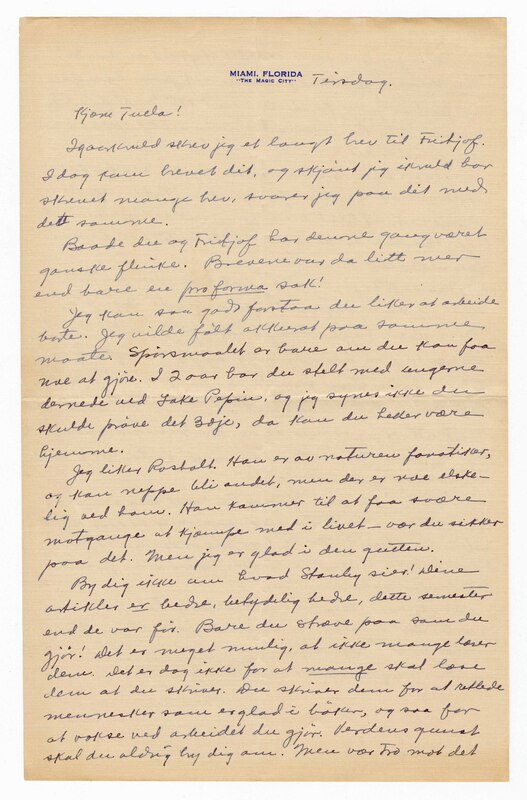 MIAMI, FLORIDA
"THE MAGIC CITY"
Tirsdag.
Kjære Tulla!
Igaarkveld skrev jeg et langt brev til Fridtjof.
Idag kom brevet dit, og skjönt jeg ikveld har
skrevet mange brev, svarer jeg paa dit med
dett samme.
Baade du og Fridtjof har denne gang været
ganske flinke. Brevene var da litt mer
end bare en pro forma sak!
Jeg kan saa godt forstaa du liker at arbeide
borte. Jeg vilde følt akkurat paa samme
maate. Spörsmaalet er bare om du kan faa
noe at gjöre. I 2 aar har du stelt med ungerne
dernede ved Lake Pepin, og jeg synes ikke du
skulde pröve det 3dje, da kan du heller være
hjemme.
Jeg liker Rostalt. Han er av naturen fanatiker,
og kan neppe bli andet, men der er noe elske-
lig ved ham. Han kommer til at faa svære
motgange at kjæmpe med i livet – vær du sikker
paa det. Men jeg er glad i den gutten.
Bry dig ikke om hvad Stanley sier! Dine
artikler er bedre, betydelig bedre, dette semester
end de var för. Bare du stræve paa som du
gjör! Det er meget mulig, at ikke mange læser
dem. Det er dog ikke for at mange skal læse
dem at du skriver. Du skriver dem for at
mennesker som er glad i böker, og saa for
at vokse ved arbeidet du gjör. Verdens gunst
skal du aldrig bry dig om. Men vær tro mot det